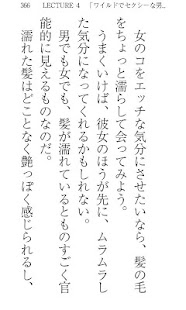 366　LECTURE 4　「ワイルドでセクシーな男..
女のコをエッチな気分にさせたいなら、髪の毛
をちょっと濡らして会ってみよう。
うまくいけば、彼女のほうが先に、ムラムラし
た気分になってくれるかもしれない。
男でも女でも、髪が濡れているとものすごく官
能的に見えるものなのだ。
濡れた髪はどことなく艶っぽく感じられるし、